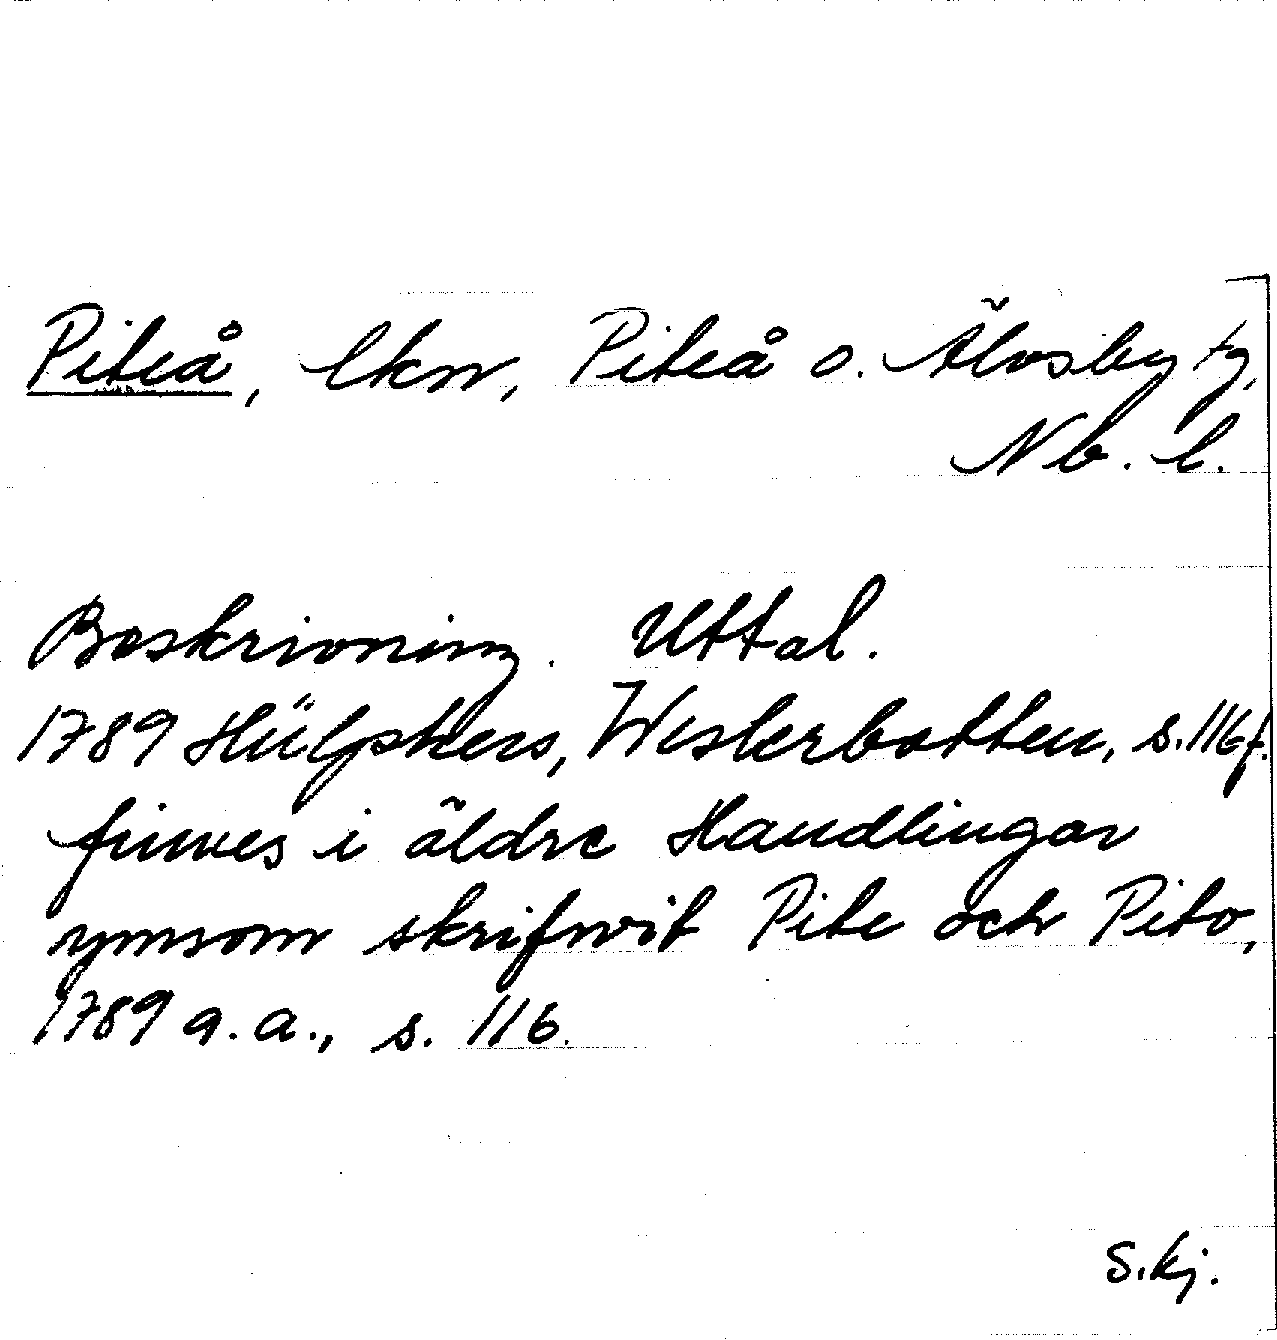 Piteå, lkn, Piteå o. Älvsby tg,
Nb. l.
Beskrivning. Uttal.
1789 Hülphers, Westerbotten, s. 116 f.
finnes i äldre Handlingar
ymsom skrifwit Pite och Pito,
1789 a.a., s. 116.
S.kj.